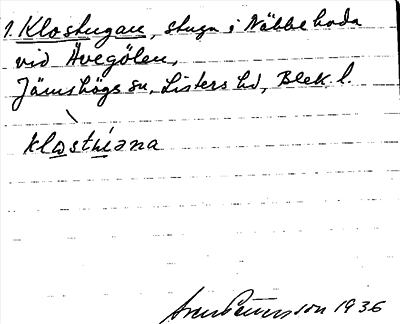 1. Klostugan, stuga i Näbbeboda
vid Åvegölen,
Jämshögs sn, Listers hd, Blek. l.
klostuana
1936